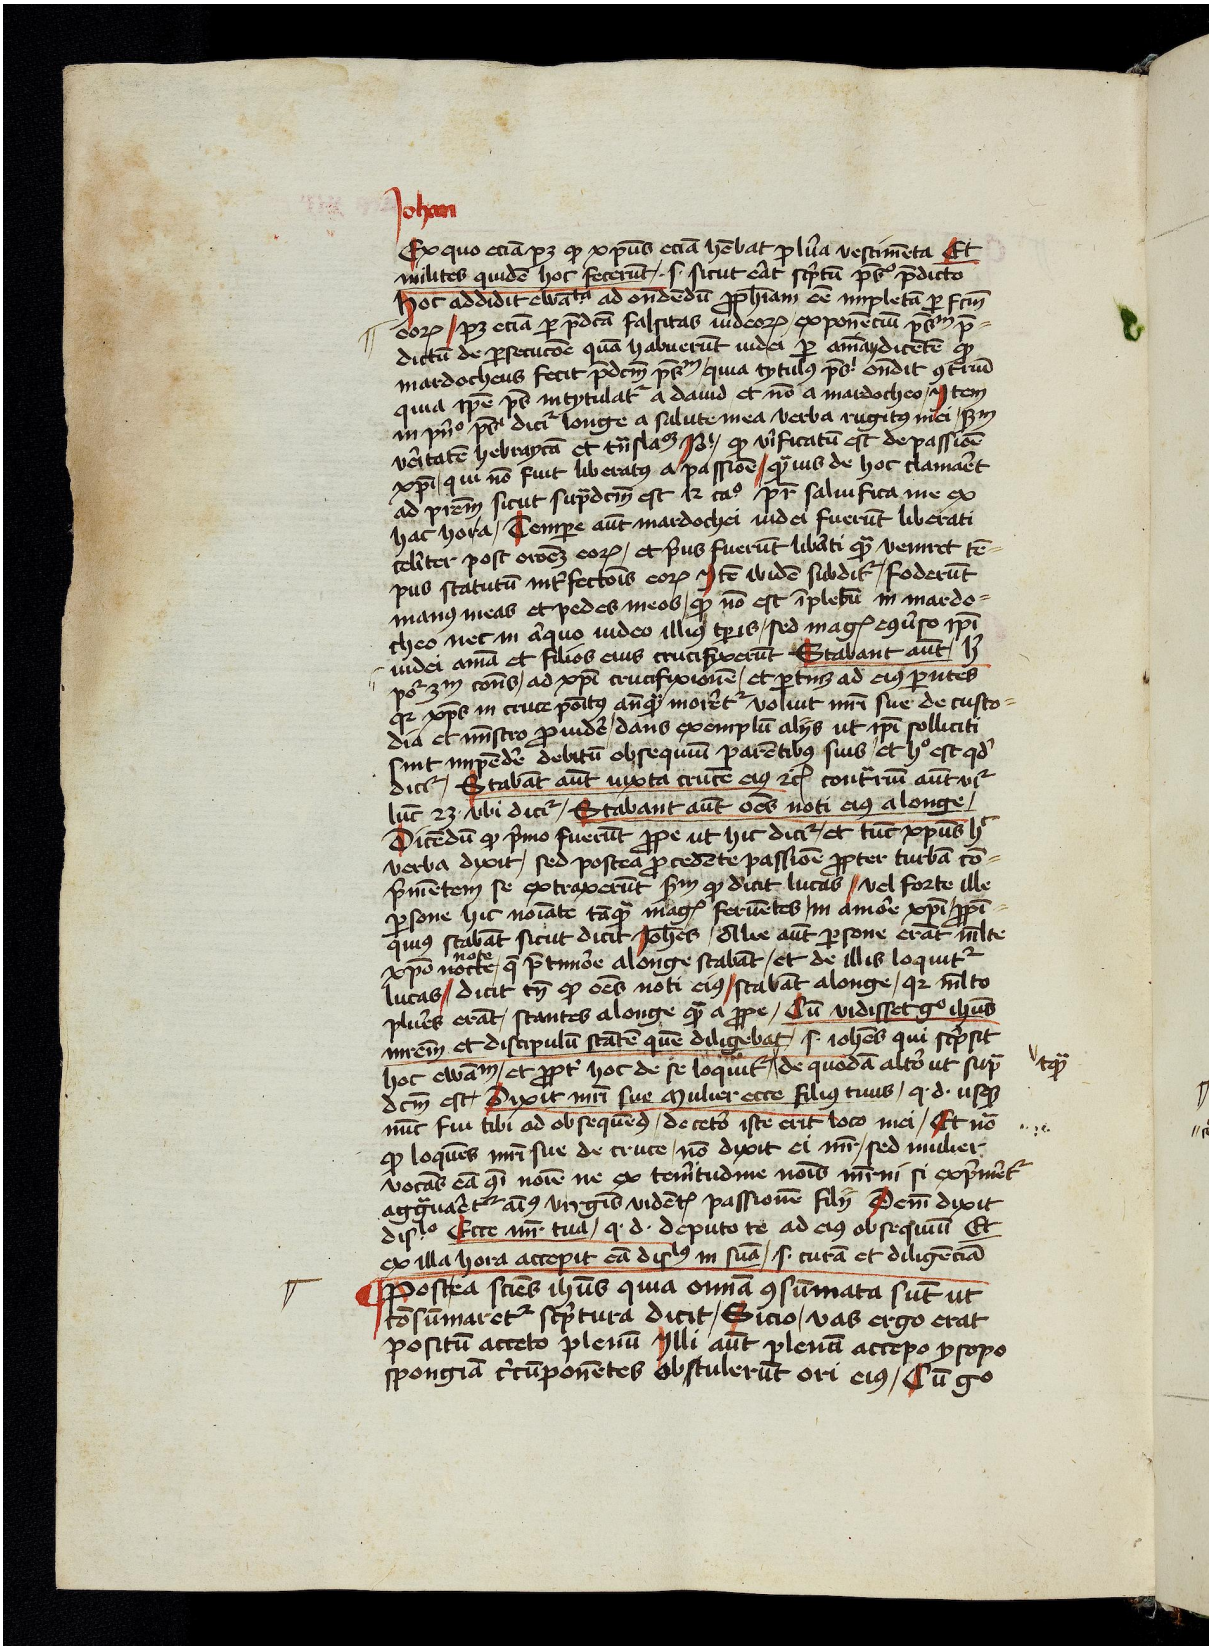 Johan
Ex quo eciā pꝫ ꝙ xpūs eciā hēbat plūa vestimēta Et
milites quidē hoc fecerūt / .s. sicut erāt sc͛ptū pˢᵒ p̄dicto
hoc addidit ewāᵗᵃ ad ondēdū ꝓphīam eē impletā ꝑ fcm̄
eoꝝ / pꝫ eciā ꝑ p̄dcā falsitas iudeoꝝ / exponenciū pˢᵐ p̄=
dictū de ꝑsecucōe quā habuerūt iudei ꝑ amā / dicētē ꝙ
mardocheus fecit p̄dcm̄ pˢᵐ / quia tytulꝰ pˢⁱ ondit ꝯtrū
quia ip̄e pˢ intytulatᷣ a dauid et nō a mardocheo / Jtem
in pⁿᵒ pˢⁱ dicᷣ longe a salute mea verba rugitꝰ mei / sᵐ
v͛itatē hebraycā et tn̄slaꝫ ꝙ v͛ificatū est de passiōe
xp̄i / qui nō fuit liberatꝰ a passiōe / qͣuis de hoc clamār͛t
ad pr̄em sicut sup͛dcm̄ est 12 caᵒ pr̄ saluifica me ex
hac hora / Tempore aūt mardochei iudei fuerūt liberati
cel͛iter post or̄oēꝫ eoꝝ / et p͛us fuerūt lib͛ati qͣ veniret tē=
pus statutū int͛fectōis eoꝝ Jtē ibidē subditᷣ / foderūt
manꝰ meas et pedes meos / ꝙ nō est īpletū in mardo=
cheo nec in al͛quo iudeo illiꝰ tp̄is / sed magꝭ eꝯ͛uso ip̄i
iudei amā et filios eius crucifixerūt Stabant aūt / hͥ
poᷣ ꝫᵐ cons̄ / ad xp̄i crucifixionē / et ꝑtinꝫ ad eiꝰ ꝑntes
qꝛ xp̄s in cruce poītꝰ an̄qͣ mor͛etᷣ voluit mr̄i sue de custo=
dia et mīstro ꝓuid͛e / dans exemplū alijs ut ip̄i solliciti
sint impēd͛e debitū obsequiū parētibus suis / et hᵒ est qd͛
dicᷣ / Stabāt aūt iuxta crucē eiꝰ ꝛcꝭ contͣriū aūt vᷣ
luc̄ 23 . vbi dicᷣ / Stabant aūt oēs noti eiꝰ alonge /
Dicēdū ꝙ p͛mo fuerūt ꝓpe ut hic dicᷣ / et tūc xpūs hᷣ
verba dixit / sed postea ꝓcedēte passiōe ꝓpter turbā cō=
p͛mētem se extraxerūt sᵐ ꝙ dicit lucas / vel forte ille
ꝑsone hic noīate tāqͣ magꝭ feruētes / in amōre xp̄i / ꝓpī=
quiꝰ stabāt sicut dicit Joh̄es / Alie aūt ꝑsone erāt ml̄te
note
xp̄o nocte / q̄ p̄ timōre alonge stabāt / et de illis loquitᷣ
lucas / dicit tn̄ ꝙ oēs noti eiꝰ / stabāt alonge / qꝛ ml̄to
plūres erāt / stantes alonge qͣ a ꝓpe / Cū vidisset gᵒ ihūs
mr̄em et discipulū stātē quē diligebat / .s. ioh̄es qui sc͛psit
hoc ewāᵐ / et ꝓpt͛ hoc de se loquitᷣ / de quodā alt͛o ut supͣ
vtqͣ
dcm̄ est / Dixit mr̄i sue Mulier ecce filiꝰ tuus / q. d. usqꝫ
nūc fui tibi ad obsequēꝰ / de cet͛o iste erit loco mei / Et nō
ꝙ loquēs mr̄i sue de cruce / nō dixit ei mr̄ / sed mulier
vocās eā qͥ noīe ne ex ten͛itudine nōis mr̄ni si exp͛meretᷣ
aggͣuāretᷣ aīꝰ virgīs vidētꝭ passionē filij Dein̄ dixit
disˡᵒ Ecce mr̄ tua / q. d. deputo te ad eiꝰ obsequiū Et
ex illa hora accepit eā disˡˢ in suā / .s. curā et diligēciā
Postea sciēs ihūs quia omīa ꝯsūmata sūt ut
cōsūmaretᷣ sc͛ptura dicit / Sicio / vas ergo erat
positū acceto plenū Jlli aūt plenā accepo ysopo
spongiā c͛cūponētes obstulerūt ori eiꝰ / Cū go